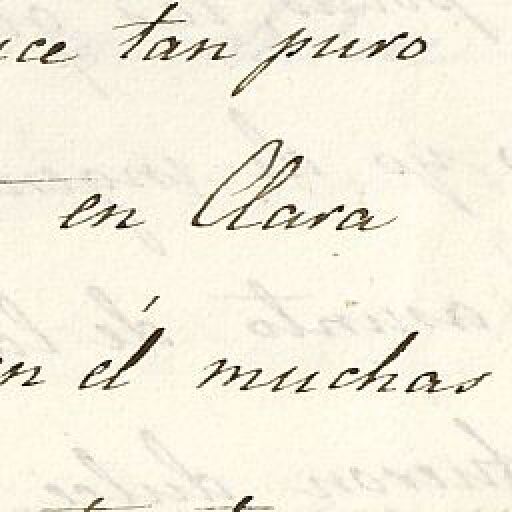 uce tan puro
en Clara
en él muchas